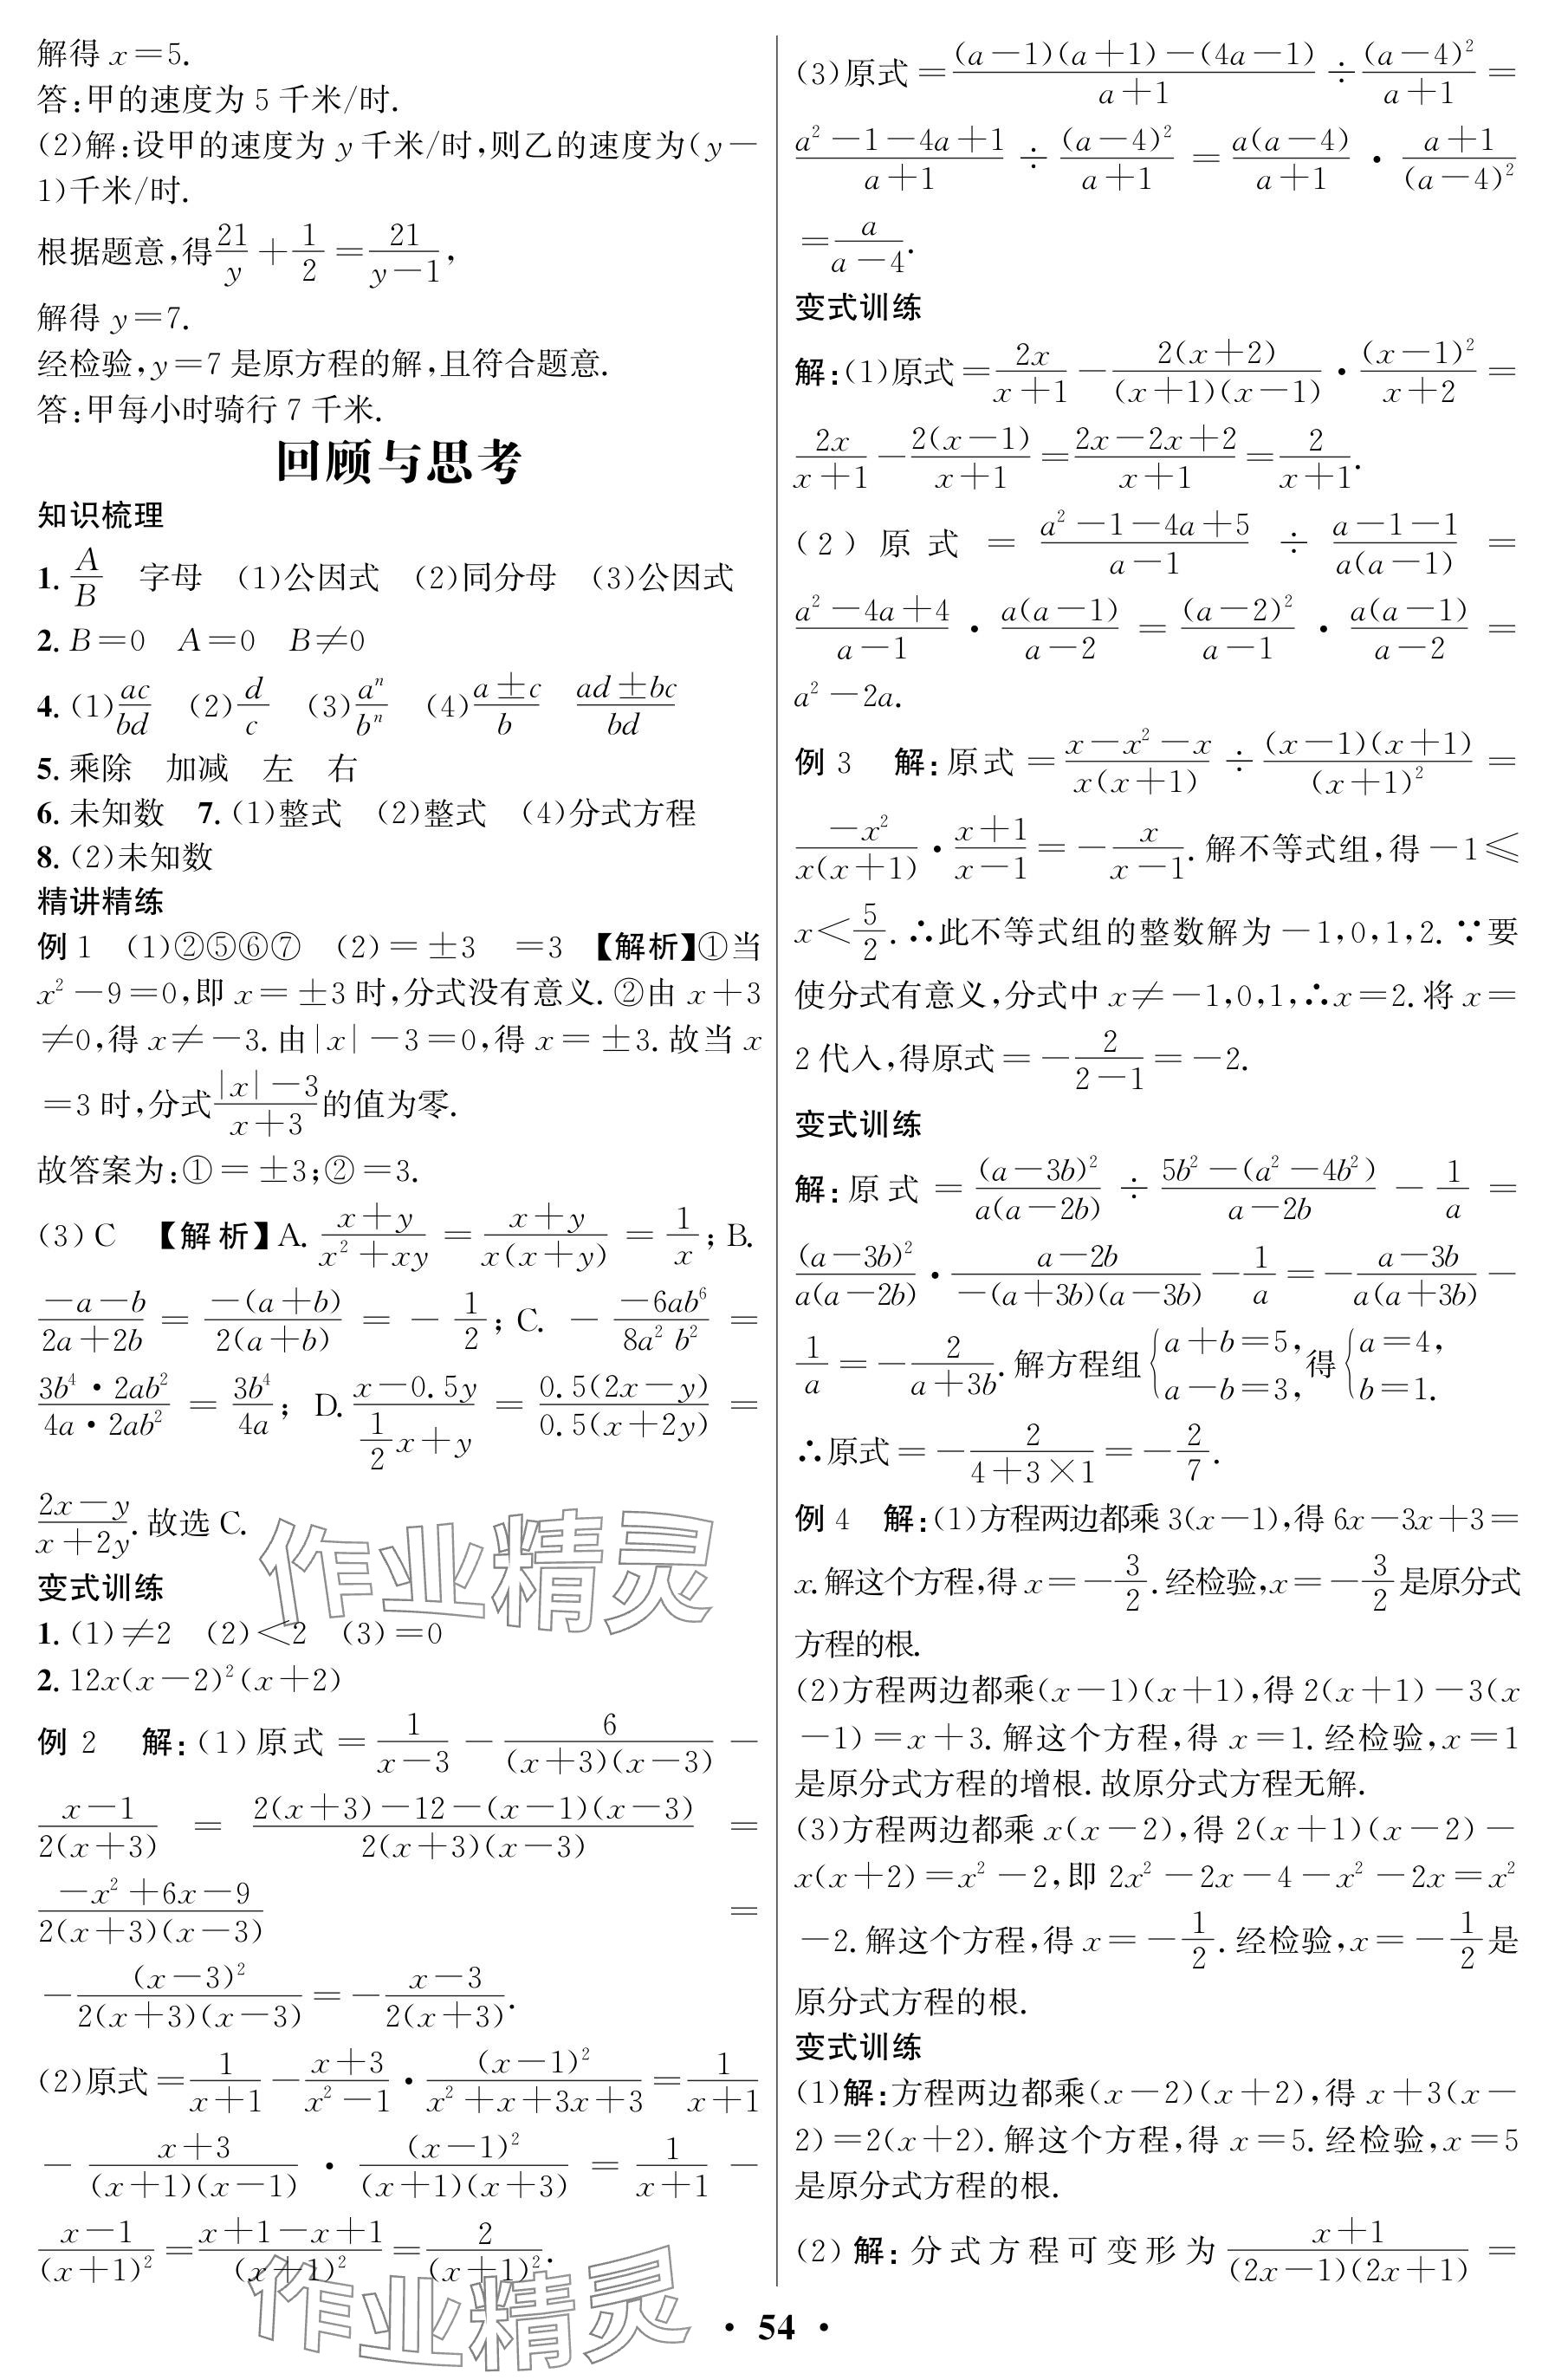 解得 x=5.
答:甲的速度为 5 千米/时.
(2)解:设甲的速度为 y 千米/时,则乙的速度为(y-
1)千米/时.
根据题意,得\frac{21}{y}+\frac{1}{2}=\frac{21}{y-1},
解得 y=7.
经检验,y=7 是原方程的解,且符合题意.
答:甲每小时骑行 7 千米.
回顾与思考
知识梳理
1. \frac{A}{B} 字母 (1)公因式 (2)同分母 (3)公因式
2. B=0 A=0 B≠0
4. (1)\frac{ac}{bd} (2)\frac{d}{c} (3)\frac{a^n}{b^n} (4)\frac{a±c}{b} \frac{ad±bc}{bd}
5. 乘除 加减 左 右
6. 未知数 7. (1)整式 (2)整式 (4)分式方程
8. (2)未知数
精讲精练
例 1 (1)②⑤⑥⑦ (2)=±3 =3 【解析】①当
x²-9=0,即 x=±3 时,分式没有意义. ②由 x+3
≠0,得 x≠-3. 由|x|-3=0,得 x=±3. 故当 x
=3 时,分式\frac{|x|-3}{x+3}的值为零.
故答案为:①=±3;②=3.
(3) C 【解析】A. \frac{x+y}{x²+xy}=\frac{x+y}{x(x+y)}=\frac{1}{x}; B.
\frac{-a-b}{2a+2b}=\frac{-(a+b)}{2(a+b)}=-\frac{1}{2}; C. -\frac{-6ab^6}{8a²b²}=
\frac{3b^4·2ab²}{4a·2ab²}=\frac{3b^4}{4a}; D. \frac{x-0.5y}{\frac{1}{2}x+y}=\frac{0.5(2x-y)}{0.5(x+2y)}=
\frac{2x-y}{x+2y}. 故选 C.
变式训练
1. (1)≠2 (2)<2 (3)=0
2. 12x(x-2)²(x+2)
例 2 解:(1)原式=\frac{1}{x-3}-\frac{6}{(x+3)(x-3)}-
\frac{x-1}{2(x+3)}=\frac{2(x+3)-12-(x-1)(x-3)}{2(x+3)(x-3)}=
\frac{-x²+6x-9}{2(x+3)(x-3)}=
-\frac{(x-3)²}{2(x+3)(x-3)}=-\frac{x-3}{2(x+3)}.
(2)原式=\frac{1}{x+1}-\frac{x+3}{x²-1}·\frac{(x-1)²}{x²+x+3x+3}=\frac{1}{x+1}
-\frac{x+3}{(x+1)(x-1)}·\frac{(x-1)²}{(x+1)(x+3)}=\frac{1}{x+1}-
\frac{x-1}{(x+1)²}=\frac{x+1-x+1}{(x+1)²}=\frac{2}{(x+1)²}.
(3)原式=\frac{(a-1)(a+1)-(4a-1)}{a+1}÷\frac{(a-4)²}{a+1}=
\frac{a²-1-4a+1}{a+1}÷\frac{(a-4)²}{a+1}=\frac{a(a-4)}{a+1}·\frac{a+1}{(a-4)²}
=\frac{a}{a-4}.
变式训练
解:(1)原式=\frac{2x}{x+1}-\frac{2(x+2)}{(x+1)(x-1)}·\frac{(x-1)²}{x+2}=
\frac{2x}{x+1}-\frac{2(x-1)}{x+1}=\frac{2x-2x+2}{x+1}=\frac{2}{x+1}.
(2)原式=\frac{a²-1-4a+5}{a-1}÷\frac{a-1-1}{a(a-1)}=
\frac{a²-4a+4}{a-1}·\frac{a(a-1)}{a-2}=\frac{(a-2)²}{a-1}·\frac{a(a-1)}{a-2}=
a²-2a.
例 3 解:原式=\frac{x-x²-x}{x(x+1)}÷\frac{(x-1)(x+1)}{(x+1)²}=
\frac{-x²}{x(x+1)}·\frac{x+1}{x-1}=-\frac{x}{x-1}. 解不等式组,得-1≤
x<\frac{5}{2}. ∴此不等式组的整数解为-1,0,1,2. ∵要
使分式有意义,分式中 x≠-1,0,1,∴x=2. 将 x=
2 代入,得原式=-\frac{2}{2-1}=-2.
变式训练
解:原式=\frac{(a-3b)²}{a(a-2b)}÷\frac{5b²-(a²-4b²)}{a-2b}-\frac{1}{a}=
\frac{(a-3b)²}{a(a-2b)}·\frac{a-2b}{-(a+3b)(a-3b)}-\frac{1}{a}=-\frac{a-3b}{a(a+3b)}-
\frac{1}{a}=-\frac{2}{a+3b}. 解方程组{a+b=5, a-b=3, 得{a=4, b=1.
∴原式=-\frac{2}{4+3×1}=-\frac{2}{7}.
例 4 解:(1)方程两边都乘 3(x-1),得 6x-3x+3=
x. 解这个方程,得 x=-\frac{3}{2}. 经检验,x=-\frac{3}{2}是原分式
方程的根.
(2)方程两边都乘(x-1)(x+1),得 2(x+1)-3(x
-1)=x+3. 解这个方程,得 x=1. 经检验,x=1
是原分式方程的增根. 故原分式方程无解.
(3)方程两边都乘 x(x-2),得 2(x+1)(x-2)-
x(x+2)=x²-2,即 2x²-2x-4-x²-2x=x²
-2. 解这个方程,得 x=-\frac{1}{2}. 经检验,x=-\frac{1}{2}是
原分式方程的根.
变式训练
(1)解:方程两边都乘(x-2)(x+2),得 x+3(x-
2)=2(x+2). 解这个方程,得 x=5. 经检验,x=5
是原分式方程的根.
(2)解:分式方程可变形为\frac{x+1}{(2x-1)(2x+1)}=
· 54 ·
作业精灵
作业精灵